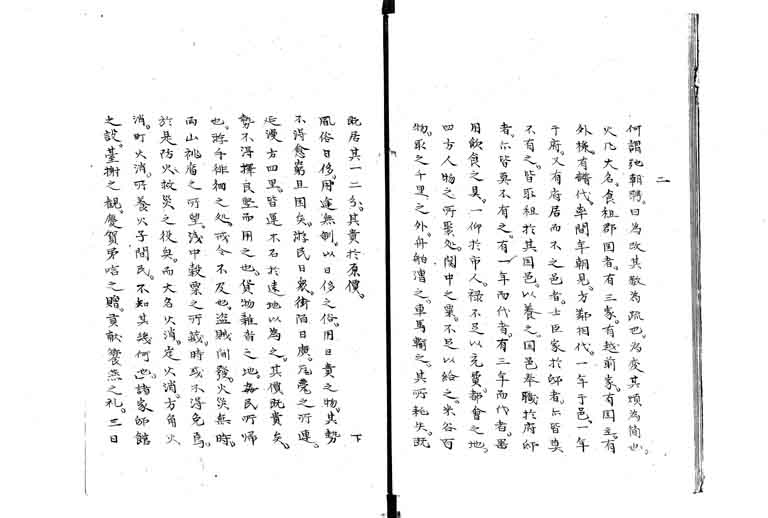 二
何謂弛朝聘。曰為改其数為疏也。為变其煩為簡也。
火凡大名。食租郡国者。有三家。有越前家。有国主。有
外様。有譜代。率間年朝見。方鄰相代。一年于邑。一年
于府。又有府居而不之邑者。士臣家於邸者。亦皆莫
不有之。皆取租於其国邑。以養之。国邑奉職於府邸
者。亦皆莫不有之。有一年而代者。有三年而代者。器
用飲食之具。一仰於市人。禄不足以充費。都會之地。
四方人物之所聚処。関中之粟。不足以給之。米谷百
物。取之千里之外。舟舶漕之。車馬輸之。其所耗失。既
既居其一二分。其貴於原價。 下
風俗日侈。用途無制。以日侈之俗。用日貴之物。其勢
不得愈窮且困矣。游民日衆。街陌日廣。瓦甍之所連。
延漫方四里。皆運木石於遠地以為之。其價既貴矣。
勢不得擇良堅而用之也。貨物雑沓之地。姦民所帰
也。游手徘徊之処。戒令不及也。盗賊間發。火災無時。
而山祧廟之所望。浅中穀粟之所藏。時或不得免焉。
於是防火救災之役興。而大名火消。定火消。方角火
消。町火消。所養火子間民。不知其幾何也。諸家邸館
之設。臺榭之観。慶賀弔唁之贈。貢献饗燕之礼。三日